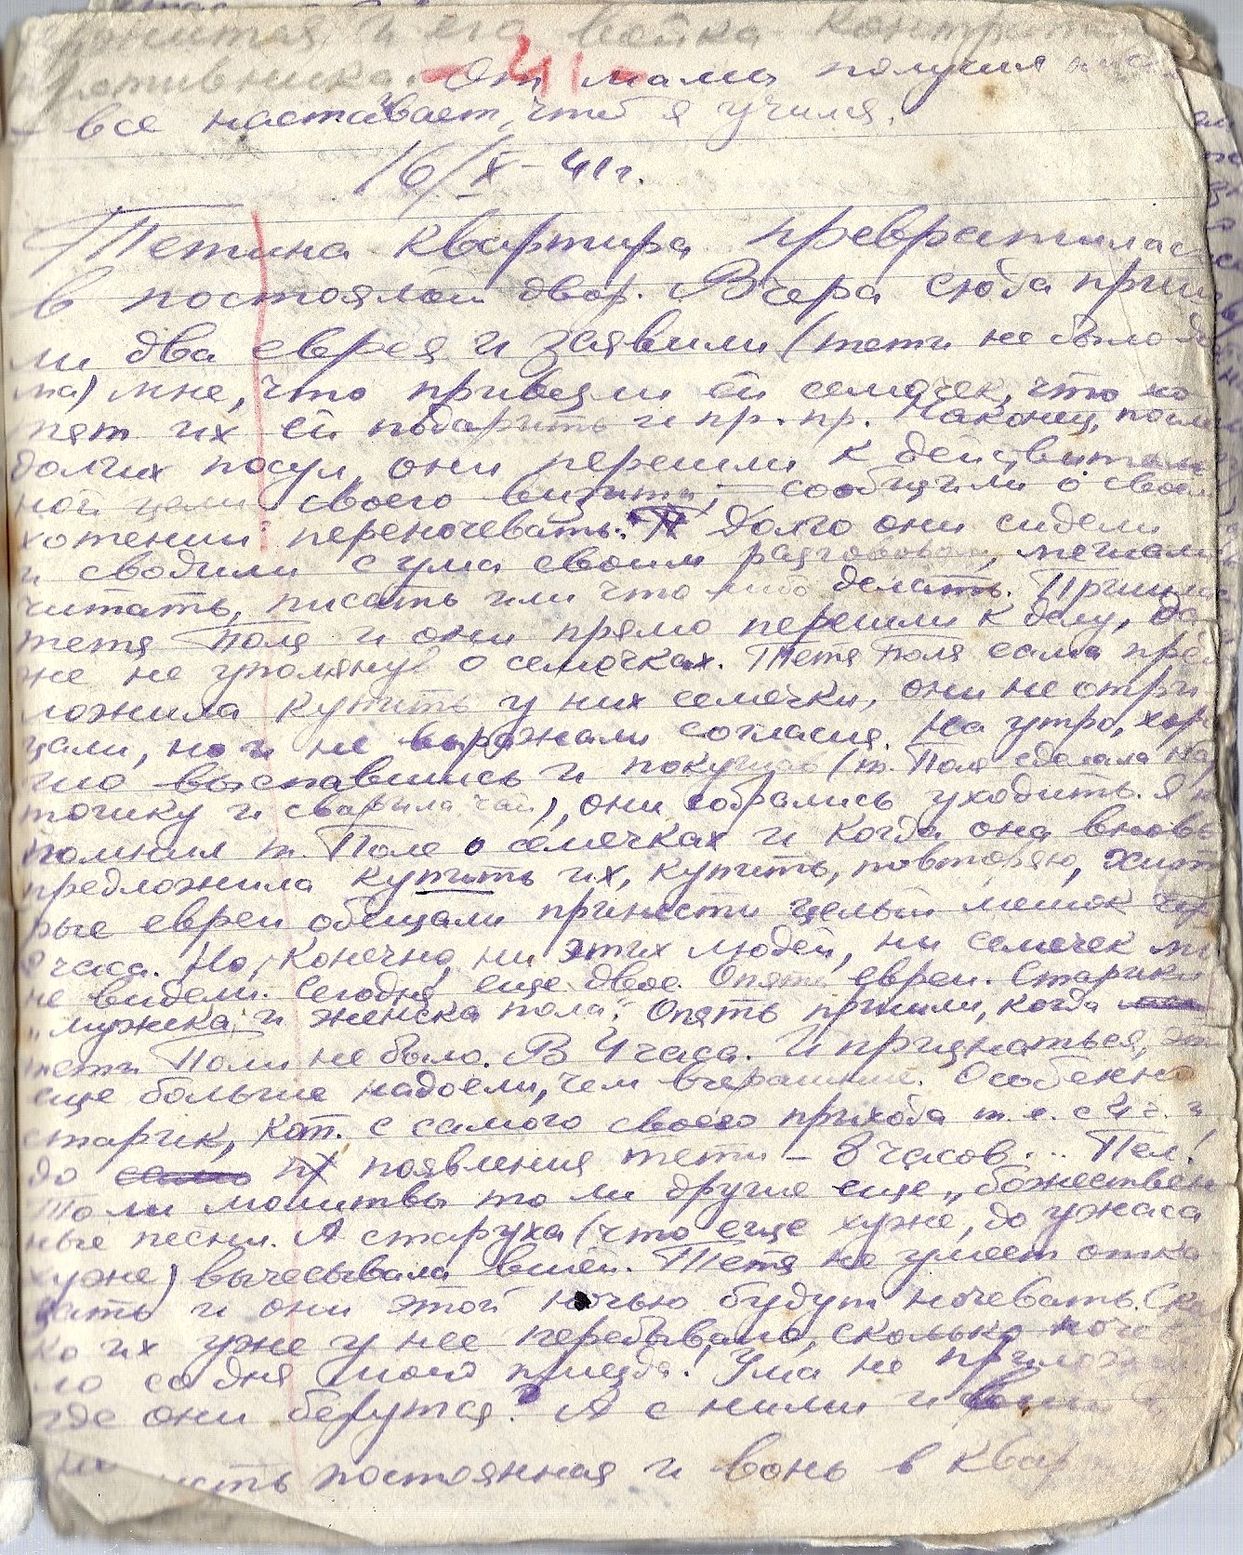 его война
противника. От мамы получил
- все настаивает, чтоб я учился.
- 41 -
16/X - 41 г.
Тетина квартира превратилась
в постоялый двор. Вчера сюда приш
ли два еврея и заявили (тети не было до
ма) мне, что привезли ей семечек, что хо
тят их ей подарить и пр. пр. Наконец, после
долгих посул, они перешли к действитель
ной цели своего визита, – сообщили о своем
хотении переночевать. Долго они сидели
и сводили с ума своим разговором, мешали
читать, писать или что либо делать. Пришла
тетя Поля и они прямо перешли к делу, да
же не упомянув о семечках. Тетя Поля сама пред
ложила купить у них семечки, они не отри
цали, но и не выражали согласия. На утро, хоро
шо выспавшись и покушав (т. Поля сделала на
точику и сварила чай), они собрались уходить. Я на
помнил т. Поле о семечках и когда она вновь
предложила купить их, купить, повторяю, хит
рые евреи обещали принести целый мешок чер
2 часа. Но, конечно, ни этих людей, ни семечек мы
не видели. Сегодня, еще двое. Опять евреи. Старики
„мужска и женска пола“. Опять пришли, когда
тети Поли не было. В 4 часа. И признаться, эти
еще больше надоели, чем вчерашние. Особенно
старик, кот. с самого своего прихода т. е. с 4 ч. и
до появления тети – 8 часов... Пел!
То ли молитвы то ли другие еще „божествен
ные песни. А старуха (что еще хуже, до ужаса
хуже) вычесывала вшей. Тетя не умеет отка
зать и они этой ночью будут ночевать. Сколь
ко их уже у нее перебывало, сколько ноче
ло со дня моего приезда! Ума не приложу
где они берутся? А с ними и
постоянная и вонь в квар